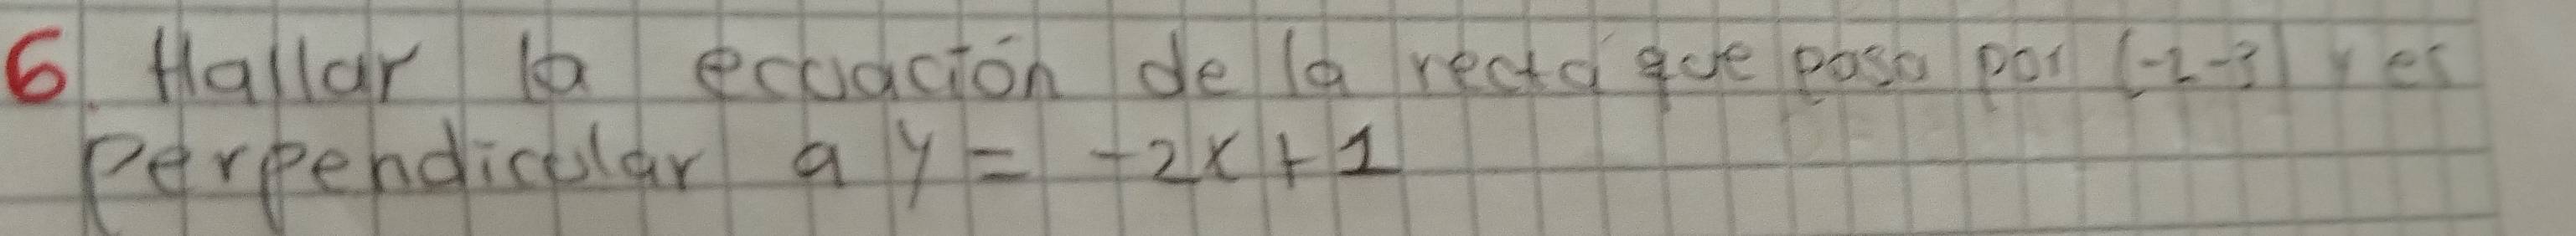 6. Hallar la ecuación de la recta que pasa por (-2-3) y es
Perpendicular a y = -2x+1